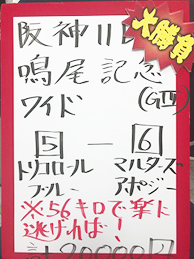 大勝負
阪神11
鳴尾記念
ワイド (GIII)
5 - 6
トリコロール マルターズ
ブルー アポジー
※56キロで楽に
逃げれば!
計20000円